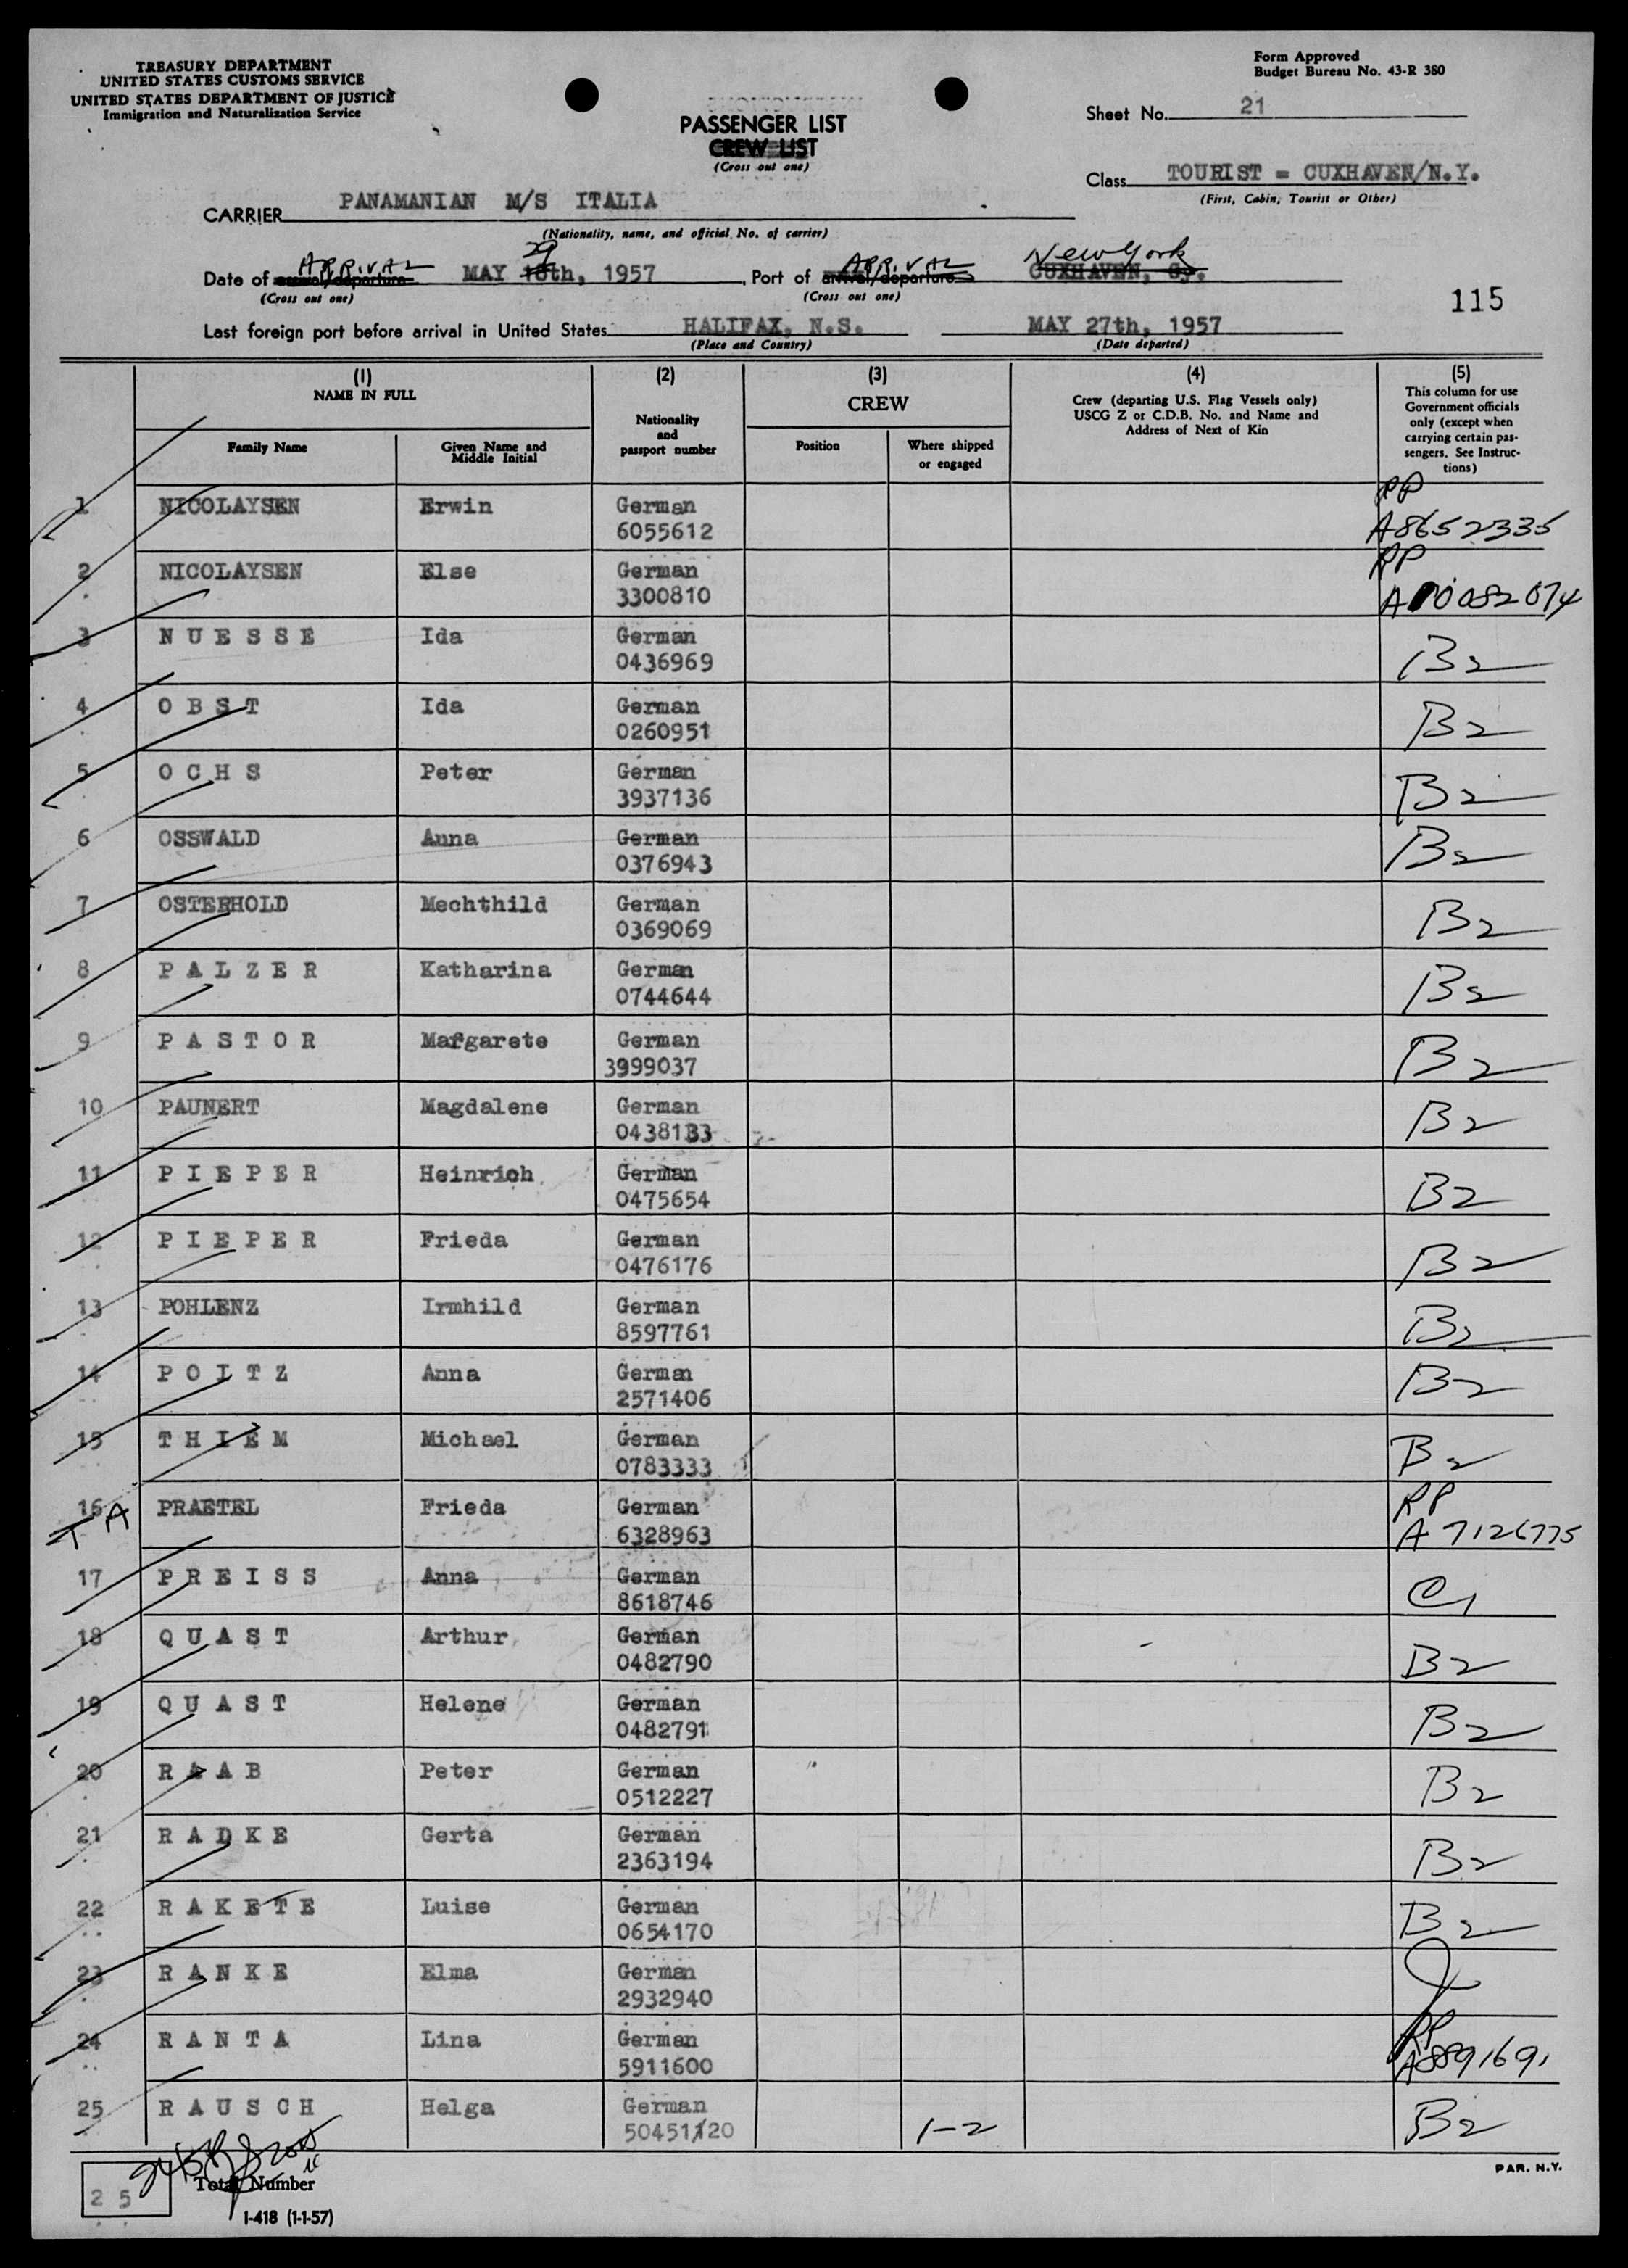 TREASURY DEPARTMENT
UNITED STATES CUSTOMS SERVICE
UNITED STATES DEPARTMENT OF JUSTICE
Immigration and Naturalization Service
Form Approved
Budget Bureau No. 43-R 380
Sheet No. 21
PASSENGER LIST
CREW LIST
(Cross out one)
Class TOURIST = CUXHAVEN/N.Y.
(First, Cabin, Tourist or Other)
CARRIER PANAMANIAN M/S ITALIA
(Nationality, name, and official No. of carrier)
ARRIVAL 29 ARRIVAL New York
Date of arrival/departure MAY 18th, 1957, Port of arrival/departure CUXHAVEN, Gy.
(Cross out one) (Cross out one)
115
Last foreign port before arrival in United States HALIFAX, N.S. MAY 27th, 1957
(Place and Country) (Date departed)
(1) NAME IN FULL
Family Name
Given Name and Middle Initial
(2)
Nationality
and
passport number
(3)
CREW
Position
Where shipped
or engaged
(4)
Crew (departing U.S. Flag Vessels only)
USCG Z or C.D.B. No. and Name and
Address of Next of Kin
(5)
This column for use
Government officials
only (except when
carrying certain pas-
sengers. See Instruc-
tions)
1 NICOLAYSEN Erwin German RP
6055612 A8652335
2 NICOLAYSEN Else German RP
3300810 A10082074
3 NUESSE Ida German B2
0436969
4 OBST Ida German B2
0260951
5 OCHS Peter German B2
3937136
6 OSSWALD Anna German B2
0376943
7 OSTERHOLD Mechthild German B2
0369069
8 PALZER Katharina German B2
0744644
9 PASTOR Margarete German B2
3999037
10 PAUNERT Magdalene German B2
0438133
11 PIEPER Heinrich German B2
0475654
12 PIEPER Frieda German B2
0476176
13 POHLENZ Irmhild German B2
8597761
14 POITZ Anna German B2
2571406
15 THIEM Michael German B2
0783333
16 TA PRAETEL Frieda German RP
6328963 A 7126775
17 PREISS Anna German C1
8618746
18 QUAST Arthur German B2
0482790
19 QUAST Helene German B2
0482791
20 RAAB Peter German B2
0512227
21 RADKE Gerta German B2
2363194
22 RAKETE Luise German B2
0654170
23 RANKE Elma German
2932940
24 RANTA Lina German RP
5911600 A8891691
25 RAUSCH Helga German B2
50451120 1-2
25 Total Number
I-418 (1-1-57)
PAR. N.Y.